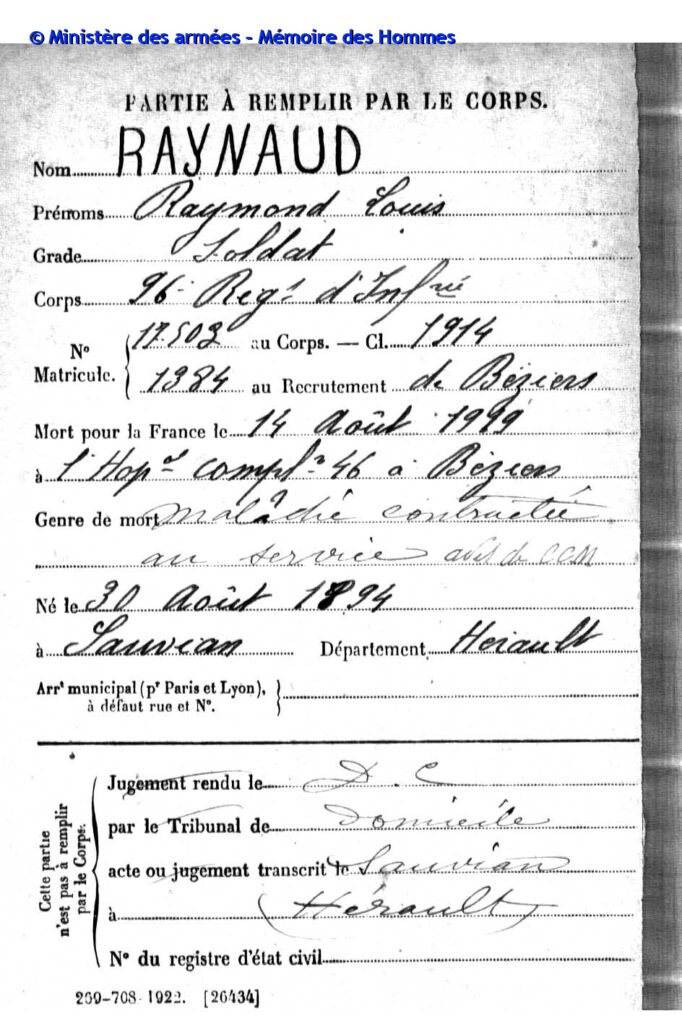 © Ministère des armées - Mémoire des Hommes
PARTIE À REMPLIR PAR LE CORPS.
Nom RAYNAUD
Prénoms Raymond Louis
Grade Soldat
Corps 96e Regt d'Infrie
No Matricule. 17.503 au Corps. — Cl. 1914
1384 au Recrutement de Béziers
Mort pour la France le 14 Août 1919
à l'Hopal complre 46 à Béziers
Genre de mort maladie contractée
au service avis du CCM
Né le 30 Août 1894
à Sauvian Département Hérault
Arrt municipal (pr Paris et Lyon),
à défaut rue et No.
Cette partie n'est pas à remplir par le Corps.
Jugement rendu le D. C
par le Tribunal de Domicile
acte ou jugement transcrit le Sauvian
à (Hérault)
No du registre d'état civil
269-708-1922. [26434]